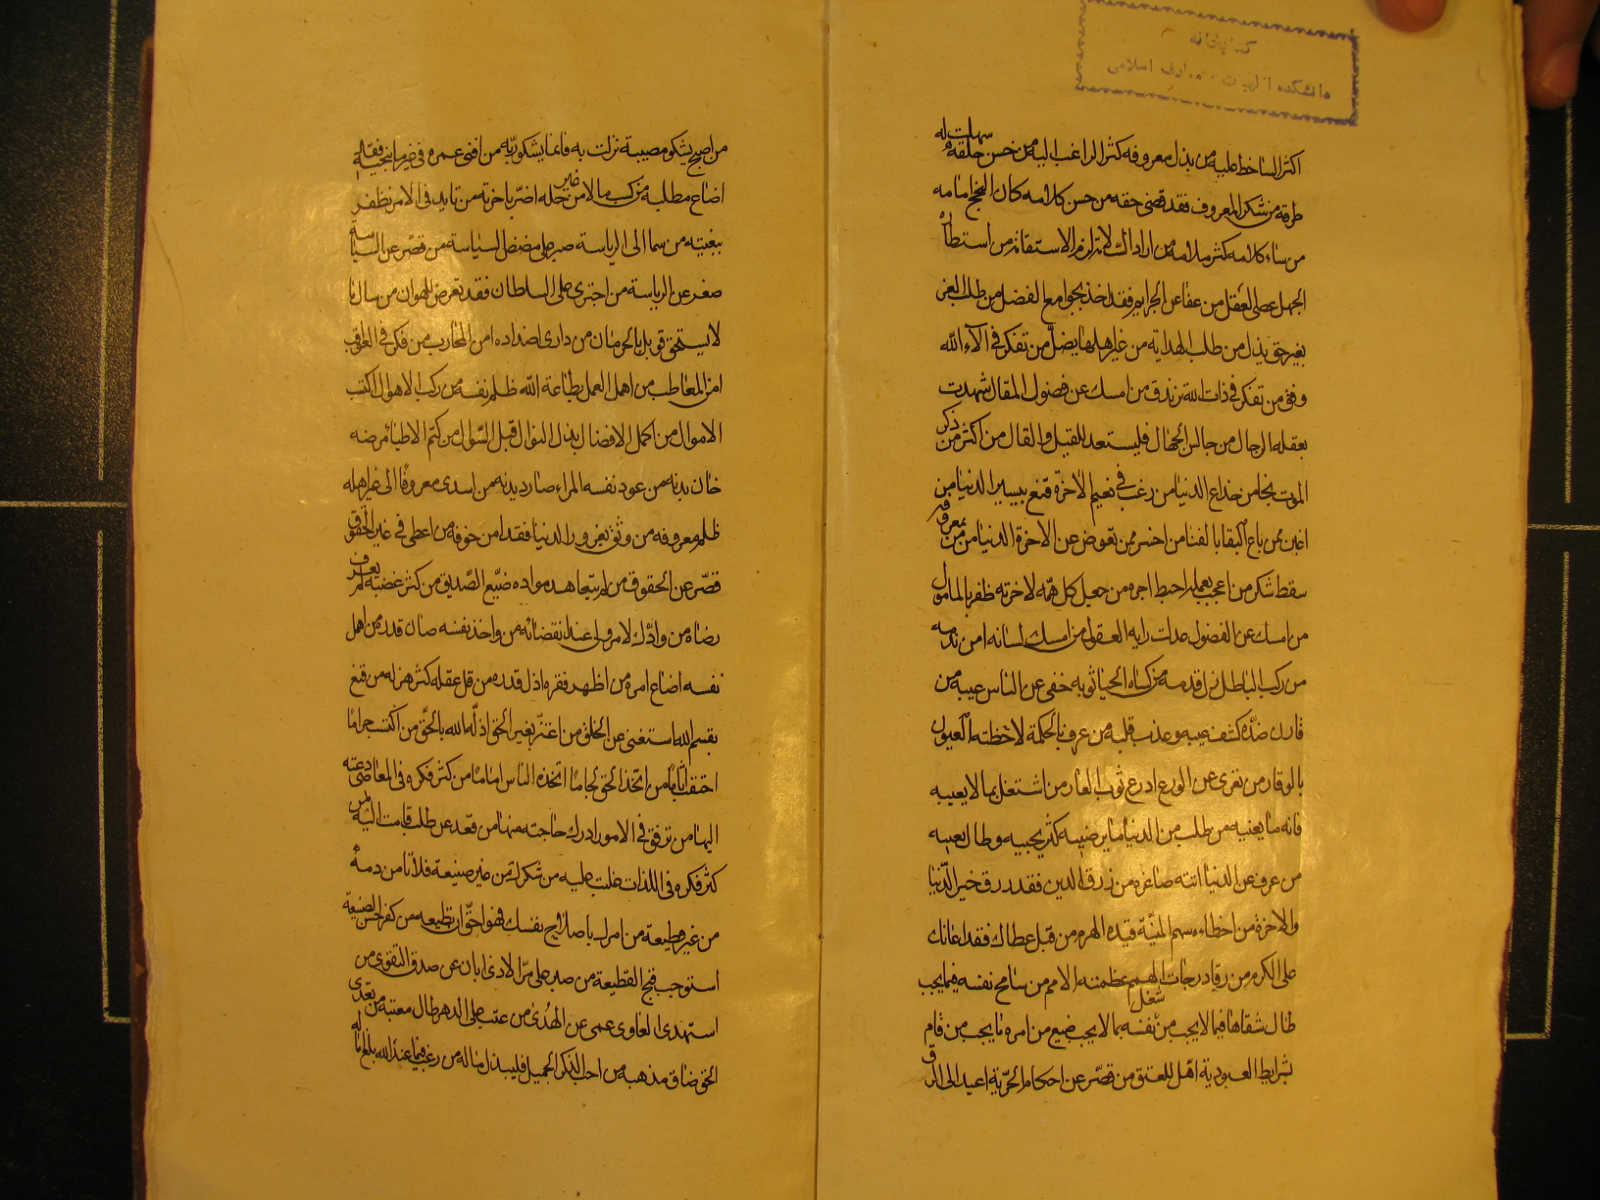 كتابخانه
دانشكده الهيات و معارف اسلامى
اكثر الساخط عليه من بذل معروفه كثر الراغب اليه من حسن خلقه سهلت له
طرقه من شكر المعروف فقد قضى حقه من حسن كلامه كان النجح امامه
من ساء كلامه كثر ملامه من اراد السلامة لزم الاستقامة من استطاء
الجهل عصى العقل من عفا عن الجرايم فقد اخذ بجوامع الفضل من طلب العز
بغير حق يذل من طلب الهداية من غير اهلها يضل من تفكر فى آلاء الله
وفق من تفكر فى ذات الله تزندق من امسك عن فضول المقال شهدت
بعقله الرجال من جالس الجهال فليستعد للقيل والقال من اكثر من ذكر
الموت نجا من خداع الدنيا من رغب فى نعيم الآخرة قنع بيسير الدنيا من
اغبن ممن باع البقا بالفنا من اخسر ممن تعوض عن الآخرة الدنيا من من بمعروفه
سقط شكره من اعجب بعمله احبط اجره من جعل كل همه لآخرته ظفر بالمامول
من امسك عن الفضول عدلت رايه العقول من امسك لسانه امن ندمه
من ركب الباطل زل قدمه من كساه الحيا ثوبه خفى عن الناس عيبه من
قارن ضده كشف عيبه وعذب قلبه من عرف بالحكمة لاحظته العيون
بالوقار من تعرى عن الورع ادرع ثوب العار من اشتغل بما لا يعنيه
فاته ما يعنيه من طلب من الدنيا ما يرضيه كثر تجنيه وطال تعبه
من عزف عن الدنيا اتته صاغره من رزق الدين فقد رزق خير الدنيا
والآخرة من اخطاءه سهم المنية قيده الهرم من قبل عطاك فقد اعانك
على الكرم من رقا درجات الهمم عظمته الامم من سامح نفسه فيما يجب
طال شقاها فيما لا يجب من شغل نفسه بما لا يجب ضيع من امره ما يجب من قام
بشرايط العبودية اهل للعتق من قصر عن احكام الحرية اعيد الى الرق
من اصبح يشكو مصيبة نزلت به فانما يشكو ربه من افنى عمره فى غير ما ينجيه فقد
اضاع مطلبه من كسب مالا من غير حله اضر باخرته من تايد فى الامر نظفر
ببغيته من سما الى الرياسة صبر على مضض السياسة من قصر عن السياسة
صغر عن الرياسة من اجترى على السلطان فقد تعرض للهوان من سال ما
لا يستحق قوبل بالحرمان من دارى اضداده امن المحارب من فكر فى العواقب
امن المعاطب من اهمل العمل بطاعة الله ظلم نفسه من ركب الاهوال اكتسب
الاموال من اكمل الافضال بذل النوال قبل السوال من كتم الاطبا مرضه
خان بدنه من عود نفسه المراء صار ديدنه من اسدى معروفا الى غير اهله
ظلم معروفه من وثق بغرور الدنيا فقد امن مخوفه من اعطى فى غير الحقوق
قصر عن الحقوق من لم يتعاهد مواده ضيع الصديق من كثر غضبه لم يعرف
رضاه من وادك لامر ولى عند انقضائه من واخذ نفسه صان قدره من اهمل
نفسه اضاع امره من اظهر فقره اذل قدره من قل عقله كثر هزله من قنع
بقسم الله استغنى عن الخلق من اعتز بغير الحق اذله الله بالحق من اكتسب حراما
احتقب اثاما من اتخذ الحق لجاما اتخذه الناس اماما من كثر فكره فى المعاصى دعته
اليها من ترفق فى الامور ادرك حاجته منها من قعد عن طلب قامت اليه
كثر فكره فى اللذات غلبت عليه من شكرك من غير صنيعة فلا تامن ذمه
من غير قطيعة من امرك باصلاح نفسك فهو احق ان تطيعه من كفر حسن الصنيعة
استوجب قبح القطيعة من صبر على مر الاذى ابان عن صدق التقوى من
استهدى الغاوى عمى عن الهدى من عتب على الدهر طال معتبه من تعدى
الحق ضاق مذهبه من احب الذكر الجميل فليبذل ماله من رغب فيما عند الله بلغ اماله